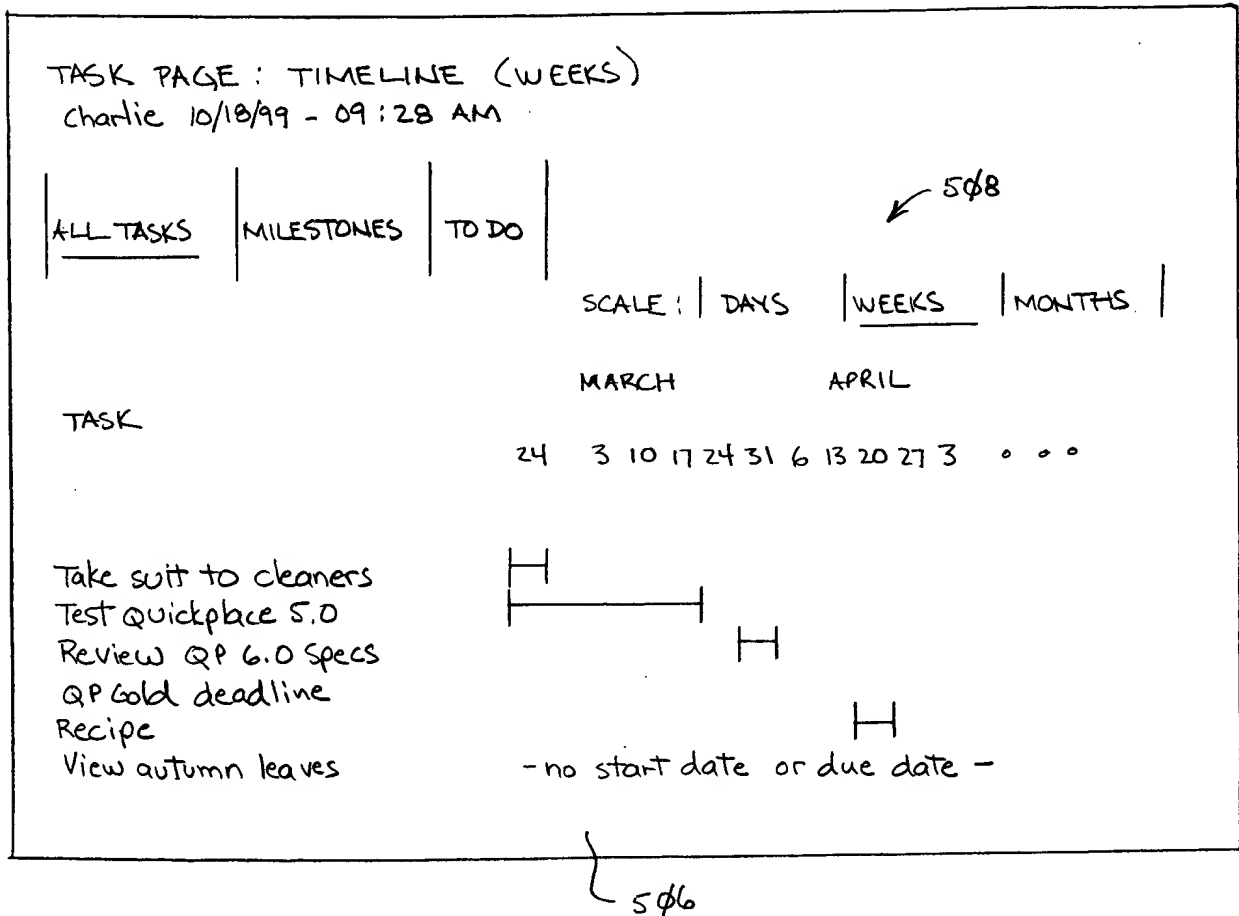 TASK PAGE: TIMELINE (WEEKS)
Charlie 10/18/99 - 09:28 AM
5Ø8
ALL TASKS | MILESTONES | TO DO |
SCALE: | DAYS | WEEKS | MONTHS |
MARCH APRIL
TASK
24 3 10 17 24 31 6 13 20 27 3 ...
Take suit to cleaners
Test Quickplace 5.0
Review QP 6.0 Specs
QP Gold deadline
Recipe
View autumn leaves - no start date or due date -
5Ø6